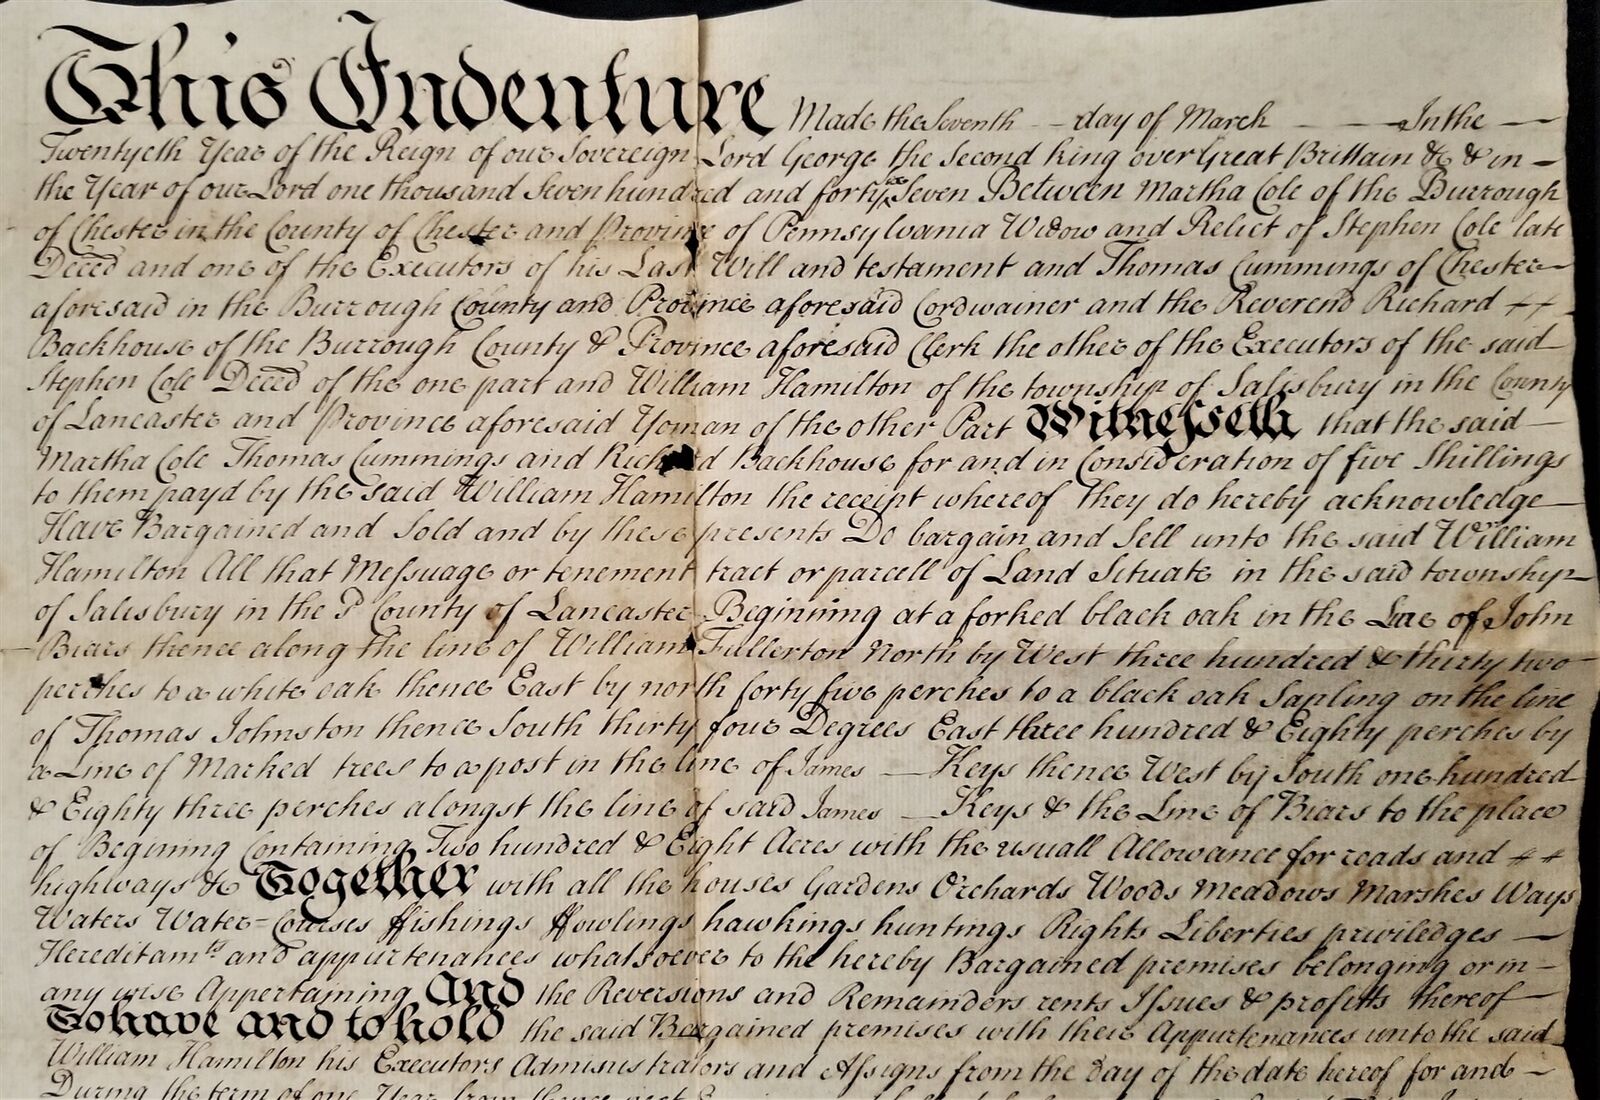 This Indenture Made the Seventh — day of March — — In the —
Twentyeth Year of the Reign of our Sovereign Lord George the Second King over Great Brittain &c & in —
the Year of our Lord one thousand Seven hundred and forty Seven Between Martha Cole of the Burrough
of Chester in the County of Chester and Province of Pennsylvania Widow and Relict of Stephen Cole late
Deced and one of the Executors of his Last Will and testament and Thomas Cummings of Chester —
aforesaid in the Burrough County and Province aforesaid Cordwainer and the Reverend Richard ++
Backhouse of the Burrough County & Province aforesaid Clerk the other of the Executors of the said
Stephen Cole Deced of the one part and William Hamilton of the township of Salisbury in the County
of Lancaster and Province aforesaid Yoman of the other Part Witnesseth that the said —
Martha Cole Thomas Cummings and Richard Backhouse for and in Consideration of five Shillings
to them payd by the said William Hamilton the receipt whereof they do hereby acknowledge —
Have Bargained and Sold and by these presents Do bargain and Sell unto the said William
Hamilton All that Messuage or tenement tract or parcell of Land Situate in the said township
of Salisbury in the sd County of Lancaster Begining at a forked black oak in the Line of John
Biars thence along the line of William Fullerton North by West three hundred & thirty two
perches to a white oak thence East by north forty five perches to a black oak Sapling on the line
of Thomas Johnston thence South thirty four Degrees East three hundred & Eighty perches by
a Line of Marked trees to a post in the line of James — Keys thence West by South one hundred
& Eighty three perches alongst the line of said James — Keys & the Line of Biars to the place
of Begining Containing Two hundred & Eight Acres with the usuall Allowance for roads and ++
highways &c Together with all the houses Gardens Orchards Woods Meadows Marshes Ways
Waters Water=Courses ffishings ffowlings hawkings huntings Rights Liberties priviledges —
Hereditamts and appurtenances whatsoever to the hereby Bargained premises belonging or in —
any wise Appertaining And the Reversions and Remainders rents Issues & profitts thereof —
To have and to hold the said Bargained premises with their Appurtenances unto the said
William Hamilton his Executors Administrators and Assigns from the day of the date hereof for and —
During the term of one Year from thence next